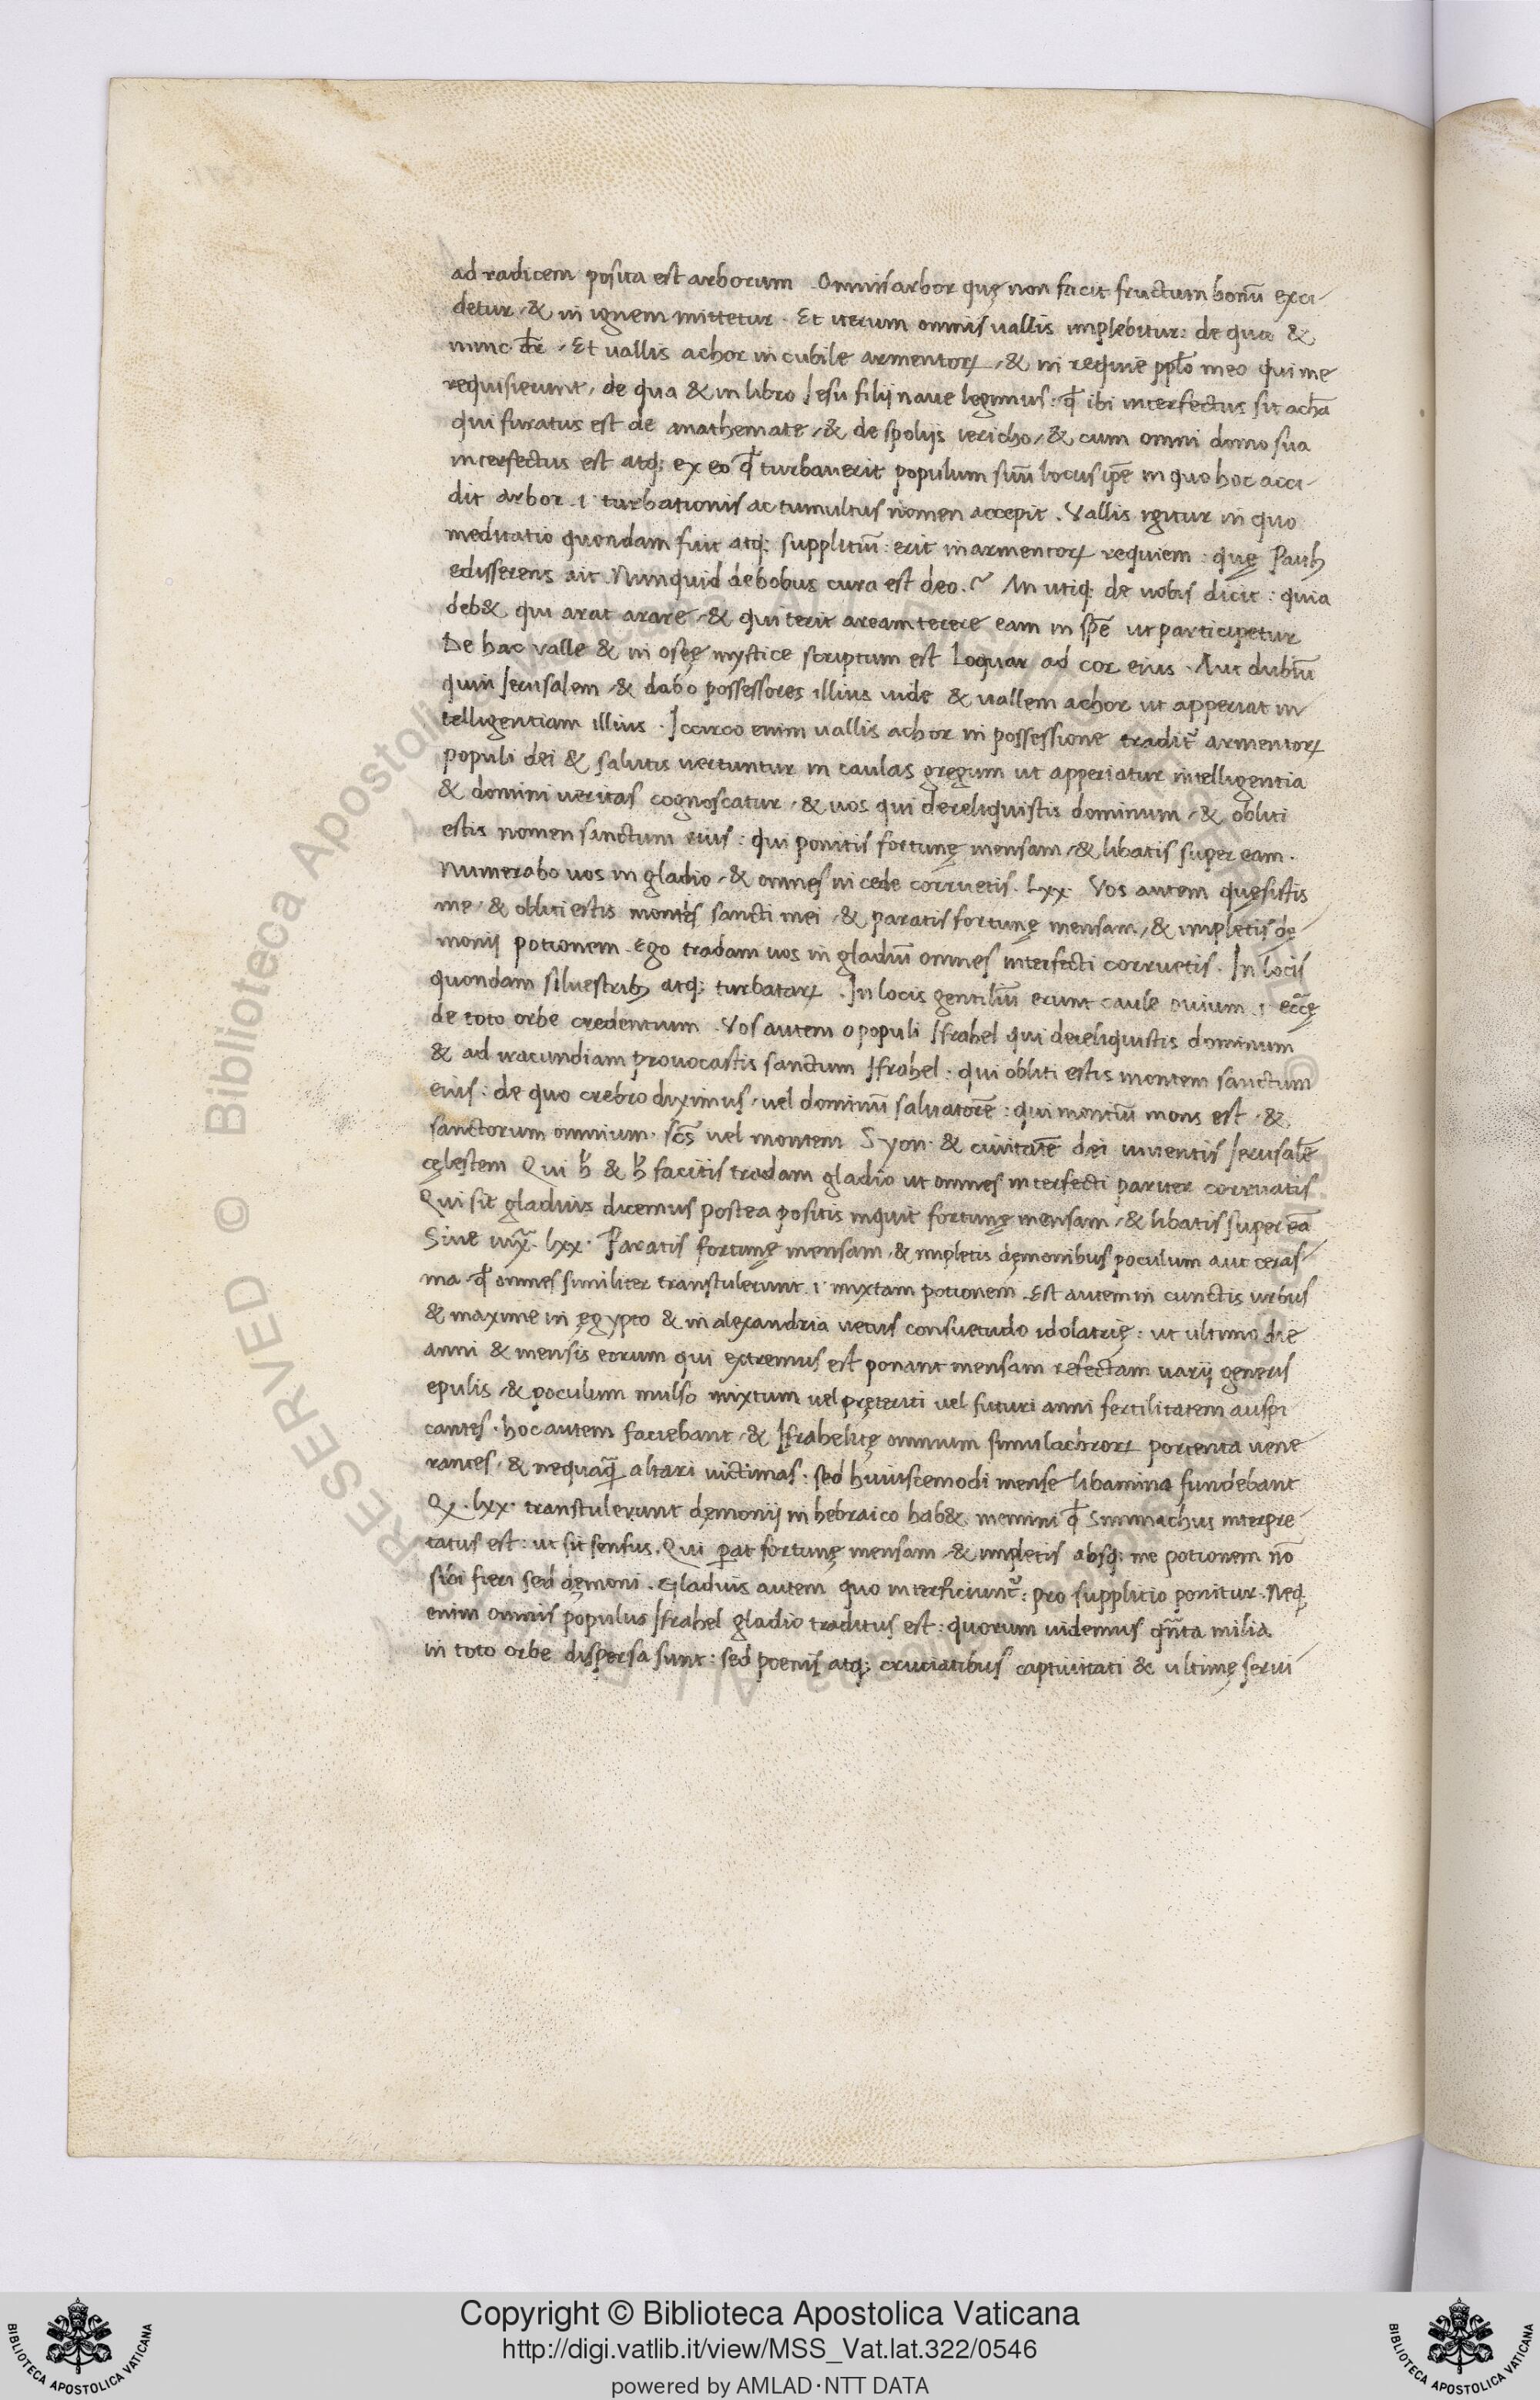 ad radicem posita est arborum . Omnis arbor quę non facit fructum bonū exci-
detur, & in ignem mittetur. Et iterum omnis vallis implebitur: de qua &
nunc dr̄, Et vallis achor in cubile armentoꝝ, & in requie pplō meo qui me
requisierunt, de qua & in libro Jesu filij naue legimus: qđ ibi interfectus sit achā
qui furatus est de anathemate, & de spolijs iericho, & cum omni domo sua
interfectus est atq; ex eo qđ turbauerit populum suū locus ip̄e in quo hoc acci-
dit arbor .i. turbationis ac tumultus nomen accepit. Vallis igitur in quo
meditatio quondam fuit atq; supplitiū: erit in armentoꝝ requiem: quę Paulꝰ
edisserens ait Nunquid de bobus cura est deo.? An utiq; de nobis dicit: quia
deb& qui arat arare, & qui terit aream terere eam in spē ut participetur
De hac valle & in oseę mystice scriptum est Loquar ad cor eius. Aut dubiū
quin Jerusalem, & dabo possessores illius inde & vallem achor ut apperiat in
telligentiam illius. Iccirco enim vallis achor in possessione tradit᷑ armentoꝝ
populi dei & salutis vertuntur in caulas gręgum ut apperiatur intelligentia
& domini veritas cognoscatur, & uos qui dereliquistis dominum, & obliti
estis nomen sanctum eius: qui ponitis fortunę mensam, & libatis super eam.
Numerabo uos in gladio, & omnes in cede corruetis. Lxx. Vos autem quęsistis
me, & obliti estis montis sancti mei, & paratis fortunę mensam, & impletis dę
monij potionem. Ego tradam uos in gladiū omnes interfecti corruetis. In locis
quondam siluestribꝰ atq; turbataꝝ. In locis gentiliū erunt caule ouium .i. eccę
de toto orbe credentium. Vos autem o populi Israhel qui dereliquistis dominum
& ad iracundiam prouocastis sanctum Israhel: qui obliti estis montem sanctum
eius: de quo crebro diximus, uel dominū saluatorē: qui montiū mons est, &
sanctorum omnium. scs̄ uel montem Syon. & ciuitatē dei uiuentis Jerusalē
cęlestem Qui h̄ & h̄ facitis tradam gladio ut omnes interfecti pariter corruatis
Qui sit gladius dicemus postea positis inquit fortunę mensam, & libatis super eā
Siue iux̄. lxx. Paratis fortunę mensam, & impletis dęmonibus poculum aut ceras-
ma. qđ omnes similiter transtulerunt .i. mixtam potionem. Est autem in cunctis urbus
& maxime in ęgypto & in alexandria uetus consuetudo idolatrię: ut ultimo die
anni & mensis eorum qui extremus est ponant mensam refectam varij generis
epulis, & poculum mulso mixtum uel pręteriti uel futuri anni fertilitatem auspi
cantes. hoc autem faciebant, & Israhelitę omnium simulachroꝝ portenta uene
rantes, & nequaq̄ altari uictimas: sed huiuscemodi mense libamina fundebant
Qꝫ. lxx. transtulerunt dęmonij in hebraico hab& memini qđ Simmachus interpre-
tatus est: ut sit sensus. Qui ꝑat fortunę mensam, & impletis absq; me potionem nō
sibi fieri sed dęmoni. Gladius autem quo interficiunt᷑: pro supplicio ponitur. Neq;
enim omnis populus Israhel gladio traditus est: quorum uidemus qn̄ta milia
in toto orbe dispersa sunt: sed poenis atq; cruciatibus captiuitati & ultimę serui
© Biblioteca Apostolica Vaticana ALL RIGHTS RESERVED
Copyright © Biblioteca Apostolica Vaticana
http://digi.vatlib.it/view/MSS_Vat.lat.322/0546
powered by AMLAD·NTT DATA
BIBLIOTECA APOSTOLICA VATICANA
BIBLIOTECA APOSTOLICA VATICANA